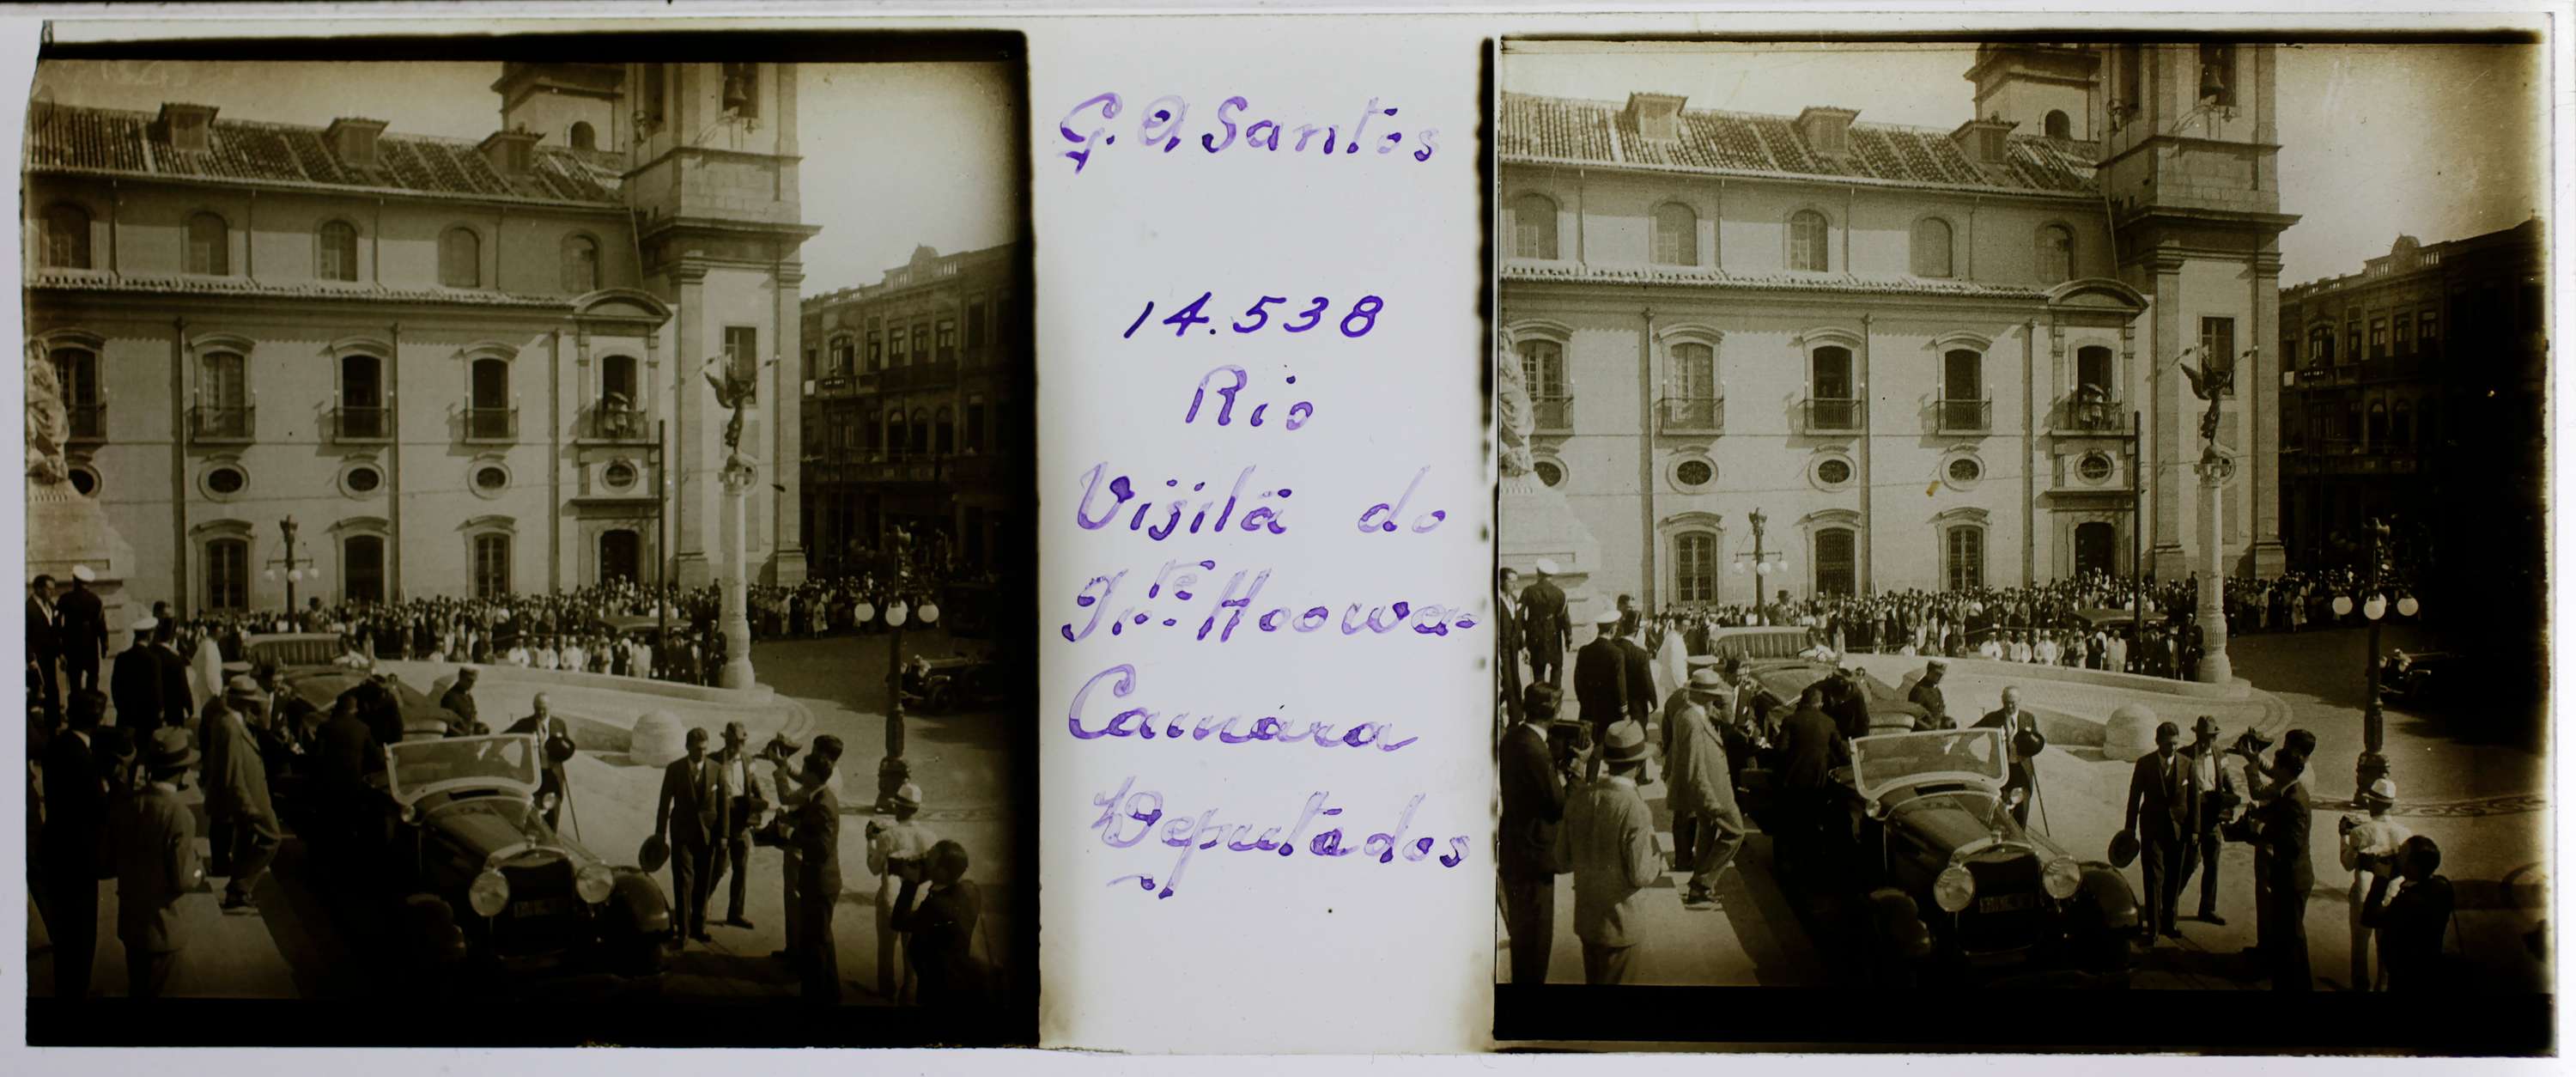 G. A Santos
14.538
Rio
Visita do
Pte Hoower
Camara
Deputados